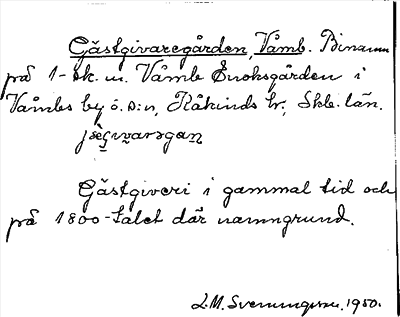 Gästgivaregården, Våmb. Binamn
på 1- sk. m. Våmb Enoksgården i
Våmbs by o. s:n, Kåkinds hr, Skb. län.
Gästgiveri i gammal tid och
på 1800-talet där namngrund.
L.M. Svenungsson. 1950.